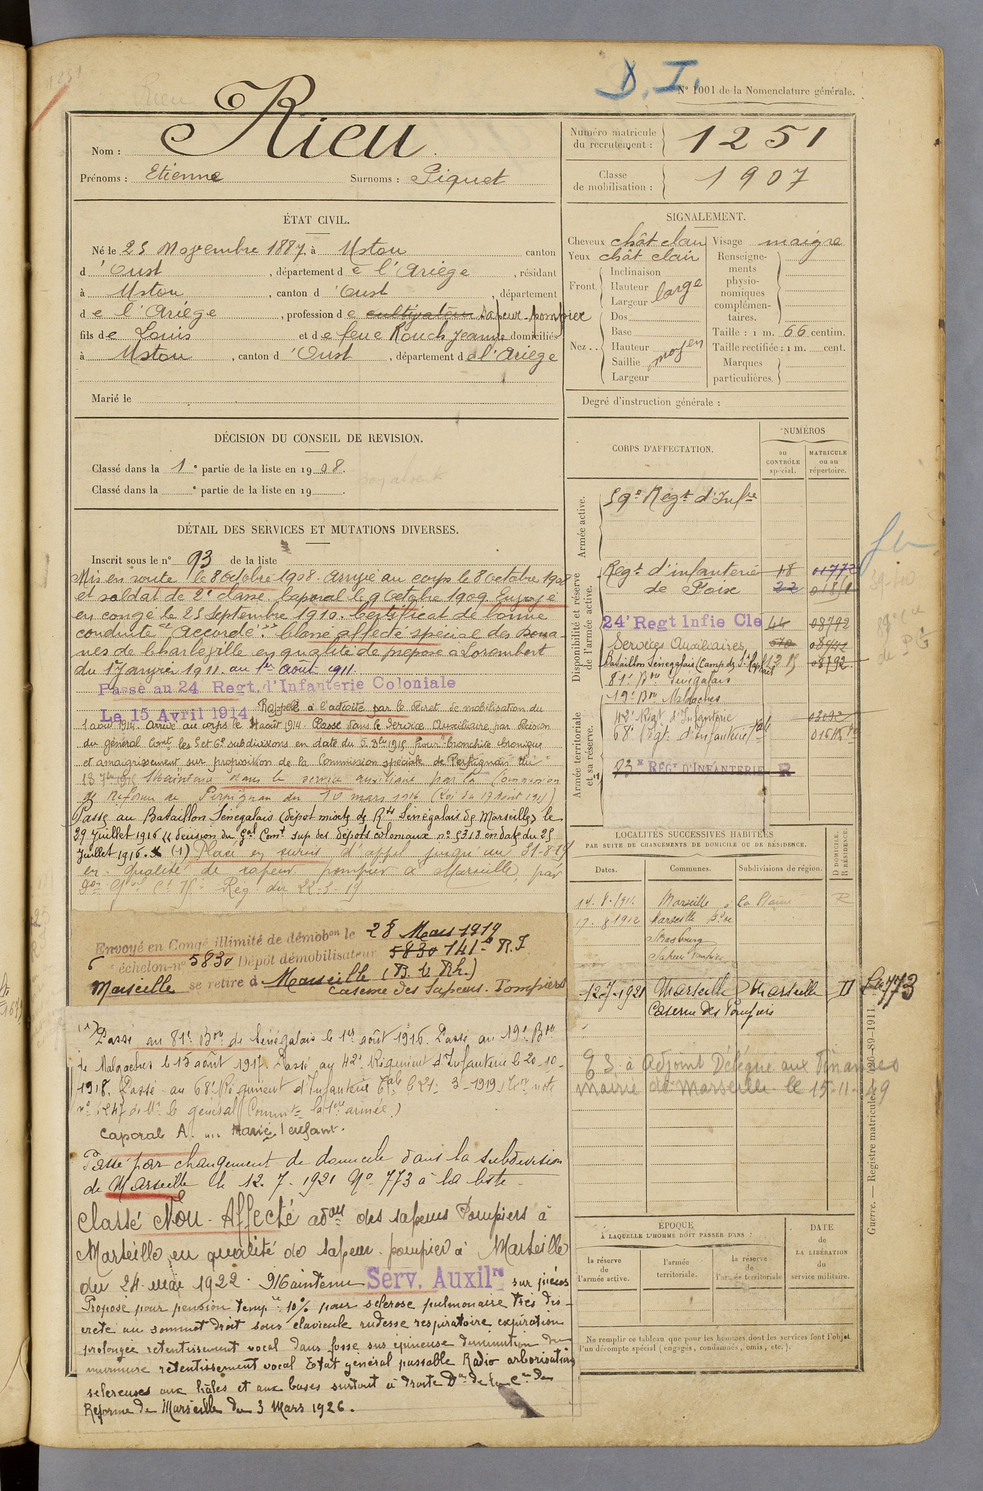 D. I.
N° 1001 de la Nomenclature générale.
Nom : Rieu
Prénoms : Etienne Surnoms : Piquet
Numéro matricule du recrutement : 1251
Classe de mobilisation : 1907
ÉTAT CIVIL.
Né le 25 Novembre 1887, à Ustou canton
d'Oust, département de l'Ariège, résidant
à Ustou, canton d'Oust, département
de l'Ariège, profession de cultivateur sapeur-pompier
fils de Louis et de feue Rouch Jeanne domiciliés
à Ustou, canton d'Oust, département de l'Ariège
Marié le
SIGNALEMENT.
Cheveux chât clair Visage maigre
Yeux chât clair
Front. Inclinaison Hauteur Largeur large
Nez.. Dos Base Hauteur Saillie Largeur moyen
Renseignements physionomiques complémentaires.
Taille : 1 m. 66 centim.
Taille rectifiée : 1 m. cent.
Marques particulières.
Degré d'instruction générale :
DÉCISION DU CONSEIL DE REVISION.
Classé dans la 1e partie de la liste en 1908.
Classé dans la e partie de la liste en 19 .
DÉTAIL DES SERVICES ET MUTATIONS DIVERSES.
Inscrit sous le n° 93 de la liste
Mis en route le 8 octobre 1908. Arrivé au corps le 8 octobre 1908
et soldat de 2e classe. Caporal le 9 Octobre 1909. Envoyé
en congé le 25 Septembre 1910. Certificat de bonne
conduite "Accordé". Classé affecté spécial des Doua
nes de Charleville en qualité de préposé à
du 17 janvier 1911 au 1er Août 1911.
Passé au 24 Regt. d'Infanterie Coloniale
Le 15 Avril 1914
Rappelé à l'activité par le décret de mobilisation du
1 août 1914. Arrivé au corps le août 1914. Classé dans le Service Auxiliaire par décision
du général Comt les 5 et 6e subdivisions en date du 5 1915 Pour "bronchite chronique
et amaigrissement sur proposition de la Commission spéciale de Perpignan du
Maintenu dans le service auxiliaire par la Commission
de réforme de Perpignan du 10 mars 1916 (Loi du 17 août 1915)
Passé au Bataillon Sénégalais (dépôt mixte de Rts Sénégalais de Marseille) le
29 juillet 1916 (décision du Gal Comt sup. des dépôts coloniaux n° 5318 en date du 25
juillet 1916. (1) Placé en sursis d'appel jusqu'au 31-8-19
en qualité de sapeur pompier à Marseille par
Reg. du 22-3-19
Envoyé en Congé illimité de démobon le 28 Mars 1919
6 échelon n° 5830 Dépôt démobilisateur 5830 141e R.I
Marseille se retire à Marseille (B. du Rh.)
Caserne des Sapeurs-Pompiers
(1) Passé au 81e Bon de Sénégalais le 1er août 1916. Passé au 19e Bon
de Malgaches le 15 août 1917. Passé au 42e Régiment d'Infanterie le 20-10-
1918. Passé au 68e Régiment d'Infanterie le 21 1919
le général Commt la 1ère armée)
Caporal A. Marié 1 enfant.
Passé par changement de domicile dans la subdivision
de Marseille le 12.7.1921 N° 773 à la liste.
Classé Non-Affecté des sapeurs Pompiers à
Marseille en qualité de sapeur-pompier à Marseille
du 24 mai 1922. Maintenu Serv. Auxilre sur pièces
Proposé pour pension tempre 10% pour sclérose pulmonaire très dis-
crète au sommet droit sous clavicule rudesse respiratoire expiration
prolongée retentissement vocal dans fosse sus épineuse diminution du
murmure retentissement vocal Etat général passable Radio arborisations
scléreuses aux hiles et aux bases surtout à droite
Réforme de Marseille du 3 Mars 1926.
CORPS D'AFFECTATION.
NUMÉROS
au CONTRÔLE spécial.
MATRICULE ou au répertoire.
Armée active.
59e Régt d'Infie
Disponibilité et réserve de l'armée active.
Regt d'infanterie 18 01772
de Foix 22
24e Regt Infie Cle 44 08792
Services Auxiliaires
Bataillon Sénégalais 08792
81e Bon Sénégalais
19e Bon Malgaches
Armée territoriale et sa réserve.
42e Régt d'Infanterie
68e Régt d'infanterie
83e REGt D'INFANTERIE
LOCALITÉS SUCCESSIVES HABITÉES
PAR SUITE DE CHANGEMENTS DE DOMICILE OU DE RÉSIDENCE.
Dates. Communes. Subdivisions de région. D DOMICILE. R RÉSIDENCE.
Marseille
17.8.1912 Marseille
Strasbourg
Sapeurs Pompiers
12.7.1921 Marseille Marseille D 773
Caserne des Pompiers
à Adjoint Délégué aux Finances
mairie de Marseille le 15-11-
ÉPOQUE
À LAQUELLE L'HOMME DOIT PASSER DANS :
la réserve de l'armée active.
l'armée territoriale.
la réserve de l'armée territoriale
DATE de LA LIBÉRATION du service militaire.
Ne remplir ce tableau que pour les hommes dont les services font l'objet
d'un décompte spécial (engagés, condamnés, omis, etc.).
Guerre. — Registre matricule. 1911.